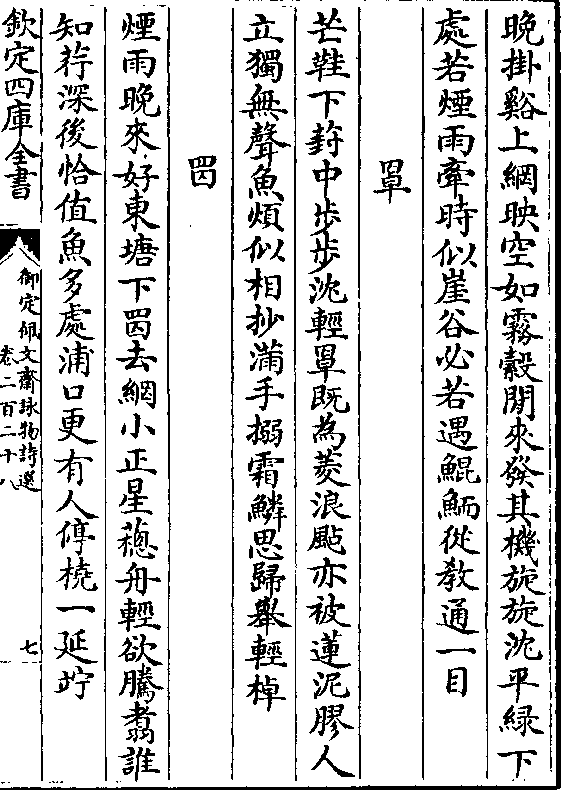 晚掛谿上網映空如霧縠閒來發其機旋旋沈平綠下
處若煙雨牽時似崖谷必若遇鯤鮞從教通一目
罩
芒鞋下葑中步步沈輕罩既為菱浪颭亦被蓮泥膠人
立獨無聲魚煩似相抄滿手搦霜鱗思歸舉輕棹
煙雨晚來好東塘下去網小正星蔥舟輕欲騰翥誰
知荇深後恰值魚多處浦口更有人停橈一延竚
欽定四庫全書
御定佩文齋詠物詩選
卷二百二十八
七